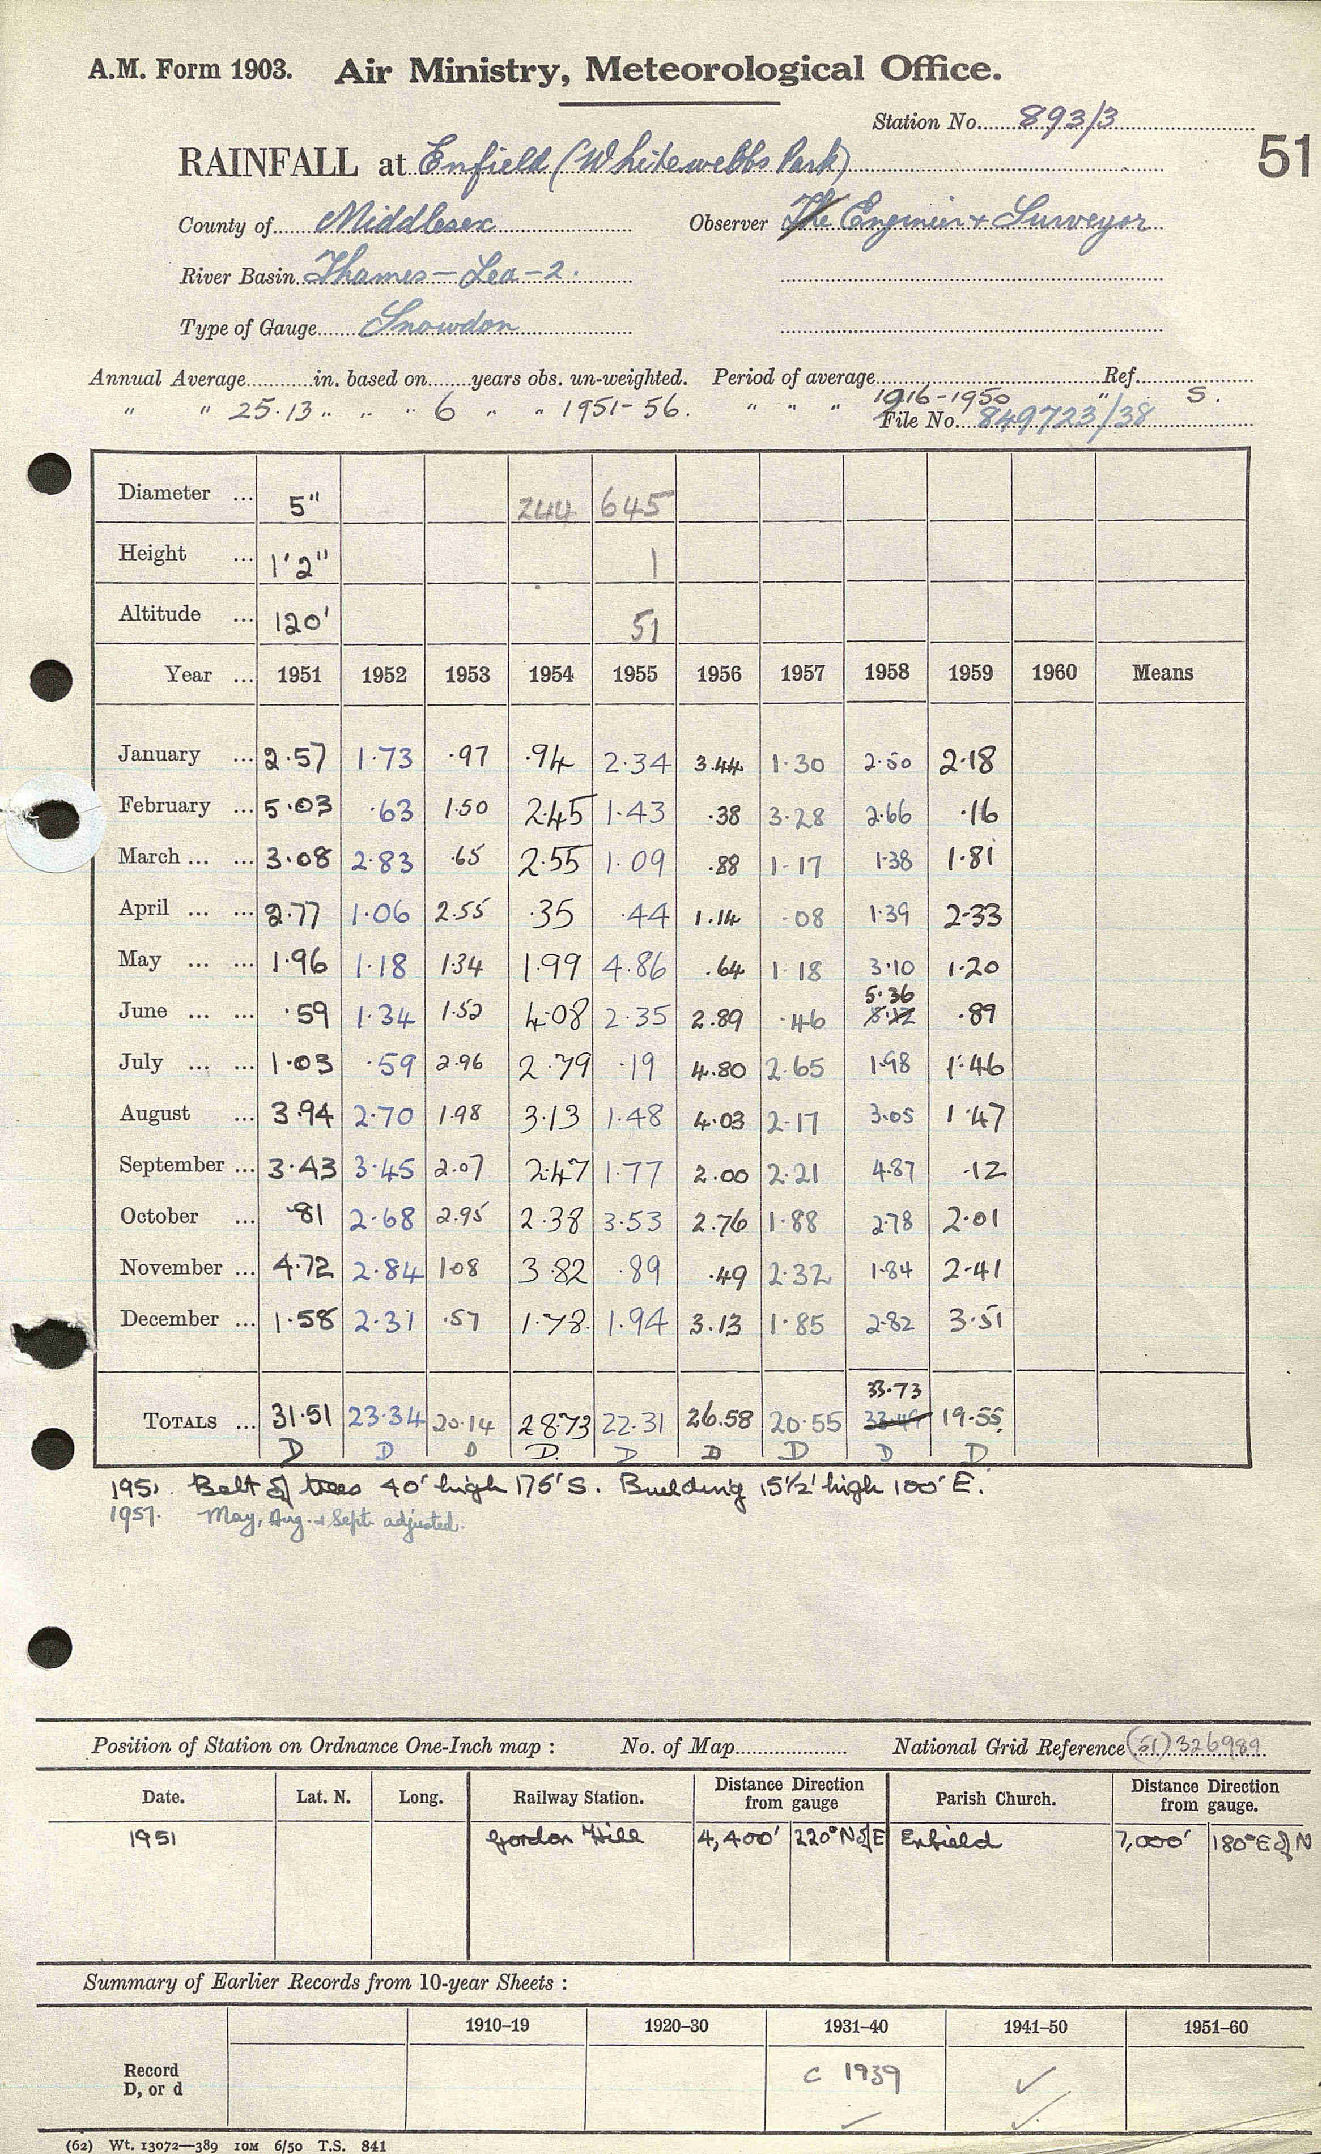 A.M. Form 1903. Air Ministry, Meteorological Office.
Station No. 893/3
51
RAINFALL at Enfield (Whitewebbs Park)
County of Middlesex Observer The Engineer + Surveyor
River Basin Thames - Lea - 2.
Type of Gauge Snowdon
Annual Average in. based on years obs. un-weighted. Period of average Ref.
" " 25.13 " " " 6 " " 1951-56. " " " 1916-1950 " S.
File No. 849723/38
Diameter ... 5" 244 645
Height ... 1'2" 1
Altitude ... 120' 51
Year ... 1951 1952 1953 1954 1955 1956 1957 1958 1959 1960 Means
January ... 2.57 1.73 .97 .94 2.34 3.44 1.30 2.50 2.18
February ... 5.03 .63 1.50 2.45 1.43 .38 3.28 2.66 .16
March ... ... 3.08 2.83 .65 2.55 1.09 .88 1.17 1.38 1.81
April ... ... 2.77 1.06 2.55 .35 .44 1.14 .08 1.39 2.33
May ... ... 1.96 1.18 1.34 1.99 4.86 .64 1.18 3.10 1.20
5.36
June ... ... .59 1.34 1.52 4.08 2.35 2.89 .46 5.12 .89
July ... ... 1.03 .59 2.96 2.79 .19 4.80 2.65 1.98 1.46
August ... 3.94 2.70 1.98 3.13 1.48 4.03 2.17 3.05 1.47
September ... 3.43 3.45 2.07 2.47 1.77 2.00 2.21 4.87 .12
October ... .81 2.68 2.95 2.38 3.53 2.76 1.88 2.78 2.01
November ... 4.72 2.84 1.08 3.82 .89 .49 2.32 1.84 2.41
December ... 1.58 2.31 .57 1.78 1.94 3.13 1.85 2.82 3.51
33.73
TOTALS ... 31.51 23.34 20.14 28.73 22.31 26.58 20.55 33.49 19.55
D D D D D D D D D
1951 Belt of trees 40' high 175' S. Building 15½' high 100' E.
1957. May, Aug. + Sept. adjusted.
Position of Station on Ordnance One-Inch map : No. of Map National Grid Reference (51) 326989
Date. Lat. N. Long. Railway Station. Distance from gauge Direction Parish Church. Distance from gauge. Direction
1951 Gordon Hill 4,400' 220° N of E Enfield 7,000' 180° E of N
Summary of Earlier Records from 10-year Sheets :
1910–19 1920–30 1931–40 1941–50 1951–60
Record D, or d C 1939 ✓
✓ ✓
(62) Wt. 13072—389 10M 6/50 T.S. 841